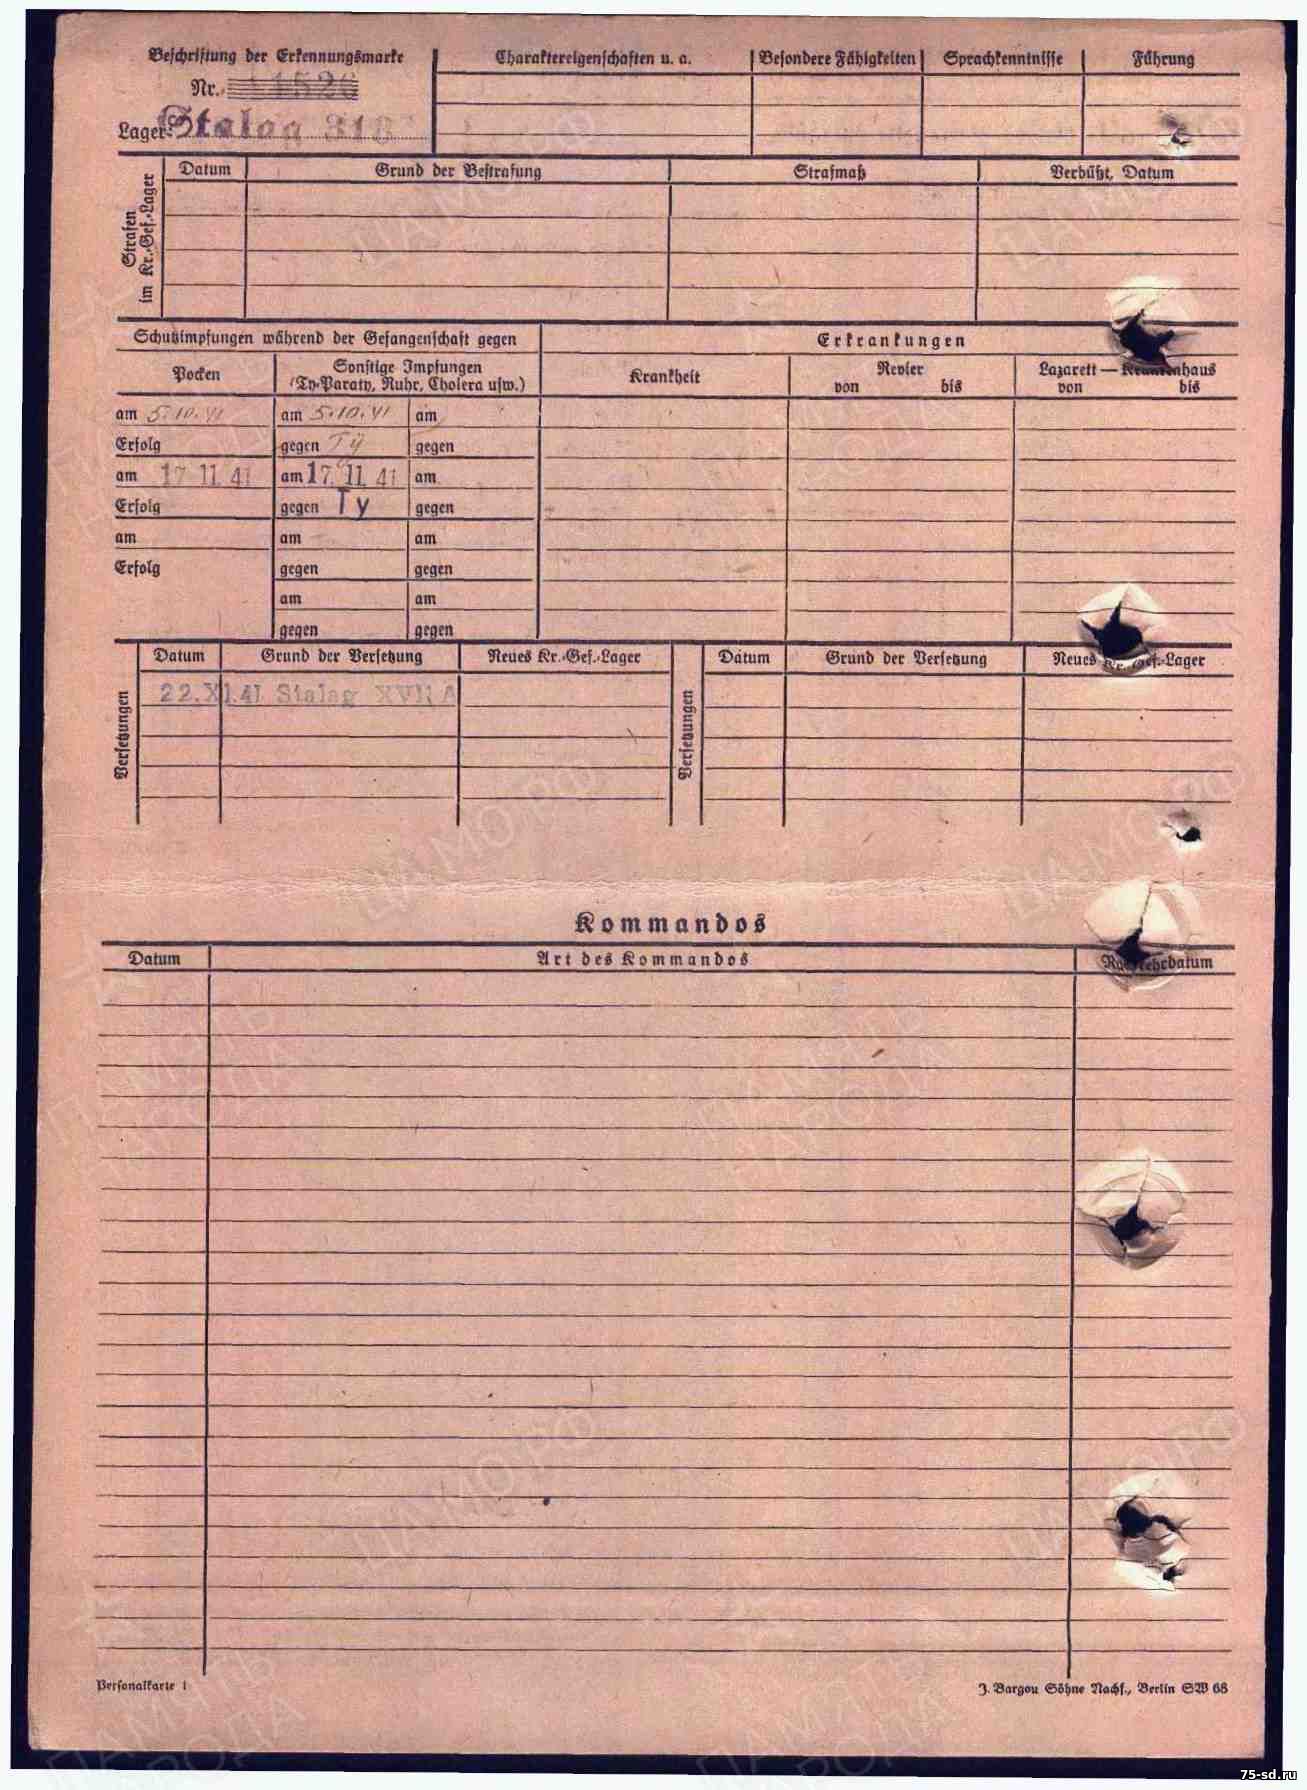 Beschriftung der Erkennungsmarke
Nr. 1526
Lager: Stalag 318
Charaktereigenschaften u. a.
Besondere Fähigkeiten
Sprachkenntnisse
Führung
Strafen im Kr.-Gef.-Lager
Datum
Grund der Bestrafung
Strafmaß
Verbüßt, Datum
Schutzimpfungen während der Gefangenschaft gegen
Erkrankungen
Pocken
Sonstige Impfungen
(Ty-Paraty, Ruhr, Cholera usw.)
Krankheit
Revier
von bis
Lazarett — Krankenhaus
von bis
am 5.10.41 am 5.10.41 am
Erfolg gegen Ty gegen
am 17 11 41 am 17. 11. 41 am
Erfolg gegen Ty gegen
am am am
Erfolg gegen gegen
am am
gegen gegen
Versetzungen
Datum Grund der Versetzung Neues Kr.-Gef.-Lager
22.XI.41 Stalag XVII A
Versetzungen
Datum Grund der Versetzung Neues Kr.-Gef.-Lager
Kommandos
Datum Art des Kommandos Rückkehrdatum
Personalkarte 1
J. Bargou Söhne Nachf., Berlin SW 68
ПАМЯТЬ НАРОДА
ЦАМО.РФ
75-sd.ru